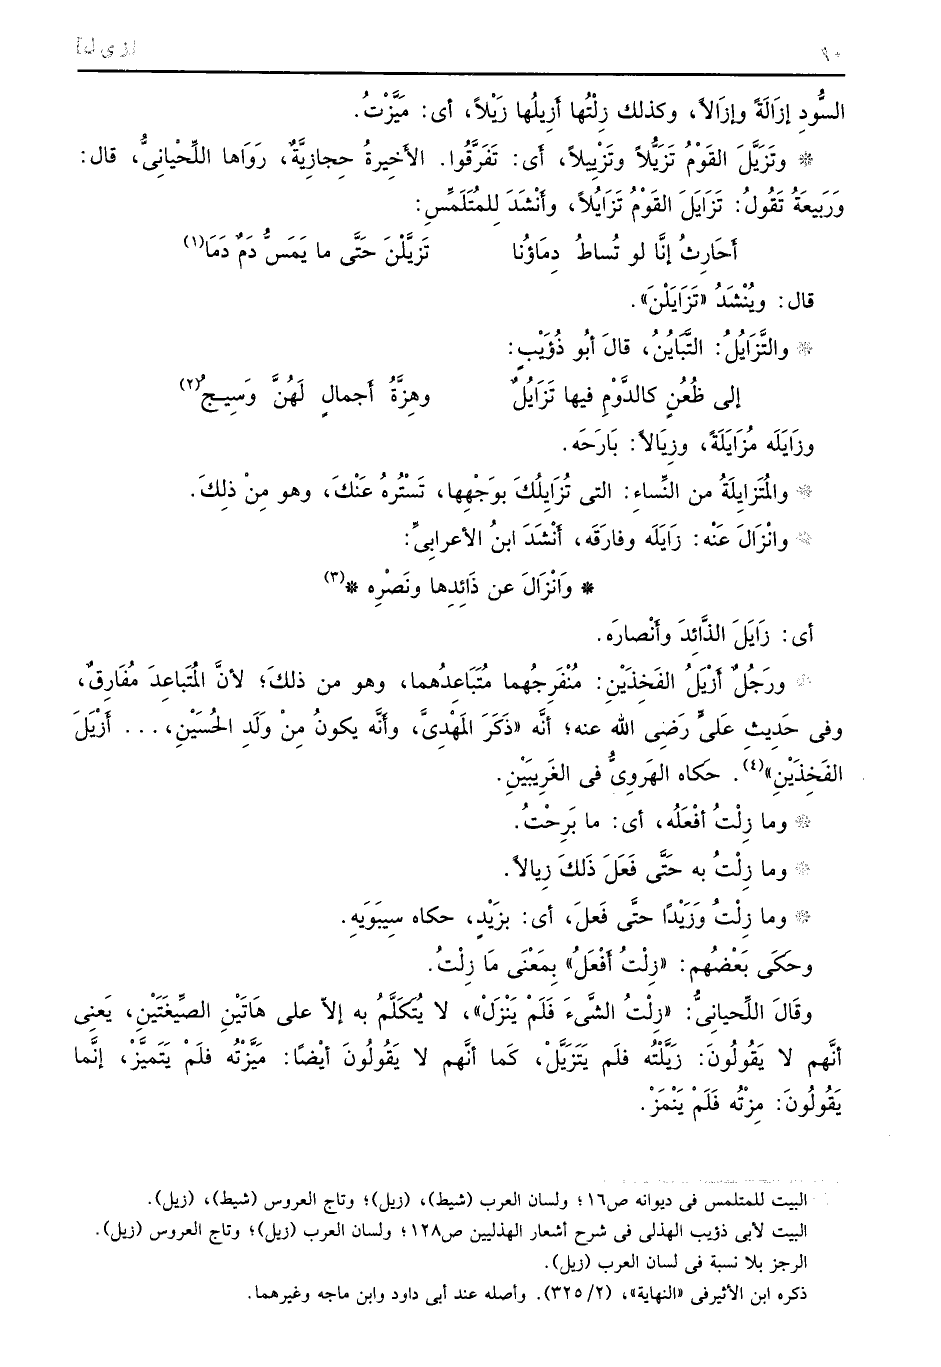 ٩٠ [ز ى ل]
السُّودِ إزَالَةً وإزَالاً، وكذلك زِلْتُها أزِيلُها زَيْلاً، أى: مَيَّزْتُ.
* وتَزَيَّلَ القَوْمُ تَزَيُّلاً وتَزْيِيلاً، أى: تَفَرَّقُوا. الأخيرةُ حِجازِيَّةٌ، رَوَاها اللِّحْيانِىُّ، قال:
وَرَبِيعَةُ تَقُولُ: تَزَايَلَ القَوْمُ تَزَايُلاً، وأنْشَدَ لِلمُتَلَمِّسِ:
أحَارِثُ إنَّا لو تُساطُ دِمَاؤُنا تَزَيَّلْنَ حَتَّى ما يَمَسُّ دَمٌ دَمَا(١)
قال: ويُنْشَدُ «تَزَايَلْنَ».
* والتَّزَايُلُ: التَّبَايُنُ، قالَ أبُو ذُؤَيْبٍ:
إلى ظُعُنٍ كالدَّوْمِ فيها تَزَايُلٌ وهِزَّةُ أجمالٍ لَهُنَّ وَسِيجُ(٢)
وزَايَلَه مُزَايَلَةً، وزِيَالاً: بَارَحَه.
* والمُتَزايِلَةُ من النِّساءِ: التى تُزَايِلُكَ بوَجْهِها، تَسْتُرهُ عَنْكَ، وهو مِنْ ذلِكَ.
* وانْزَالَ عَنْه: زَايَلَه وفارقَه، أنْشَدَ ابنُ الأعرابِىِّ:
* وَانْزَالَ عن ذَائِدِها ونَصْرِه *(٣)
أى: زَايَلَ الذَّائِدَ وأنْصارَه.
* ورَجُلٌ أزْيَلُ الفَخِذَيْنِ: مُنْفَرِجُهما مُتَبَاعدُهما، وهو من ذلكَ؛ لأنَّ المُتَباعِدَ مُفَارِقٌ،
وفى حَدِيثِ عَلىٍّ رَضِى الله عنه؛ أنَّه «ذَكَرَ المَهْدِىَّ، وأنَّه يكونُ مِنْ ولَدِ الحُسَيْنِ، ... أزْيَلَ
الفَخِذَيْنِ»(٤). حكاه الهَرَوِىُّ فى الغَرِيبَيْنِ.
* وما زِلْتُ أفْعَلُه، أى: ما بَرِحْتُ.
* وما زِلْتُ به حَتَّى فَعَلَ ذَلكَ زِيالاً.
* وما زِلْتُ وَزَيْدًا حتَّى فَعلَ، أى: بزَيْدٍ، حكاه سِيبَوَيهِ.
وحَكَى بَعْضُهم: «زِلْتُ أفْعَلُ» بِمَعْنَى مَا زِلْتُ.
وقَالَ اللِّحيانِىُّ: «زِلْتُ الشَّىءَ فَلَمْ يَنْزَلْ»، لا يُتَكَلَّمُ به إلاَّ على هَاتَيْنِ الصِّيغَتَيْنِ، يَعنِى
أنَّهم لا يَقُولُونَ: زَيَّلْتُه فلَم يَتَزَيَّلْ، كما أنَّهم لا يَقُولُونَ أيْضًا: مَيَّزْتُه فلَمْ يَتَميَّزْ، إنَّما
يَقُولُونَ: مِزْتُه فَلَمْ يَنْمَزْ.
البيت للمتلمس فى ديوانه ص١٦؛ ولسان العرب (شيط)، (زيل)؛ وتاج العروس (شيط)، (زيل).
البيت لأبى ذؤيب الهذلى فى شرح أشعار الهذليين ص١٢٨؛ ولسان العرب (زيل)؛ وتاج العروس (زيل).
الرجز بلا نسبة فى لسان العرب (زيل).
ذكره ابن الأثيرفى «النهاية»، (٣٢٥/٢). وأصله عند أبى داود وابن ماجه وغيرهما.